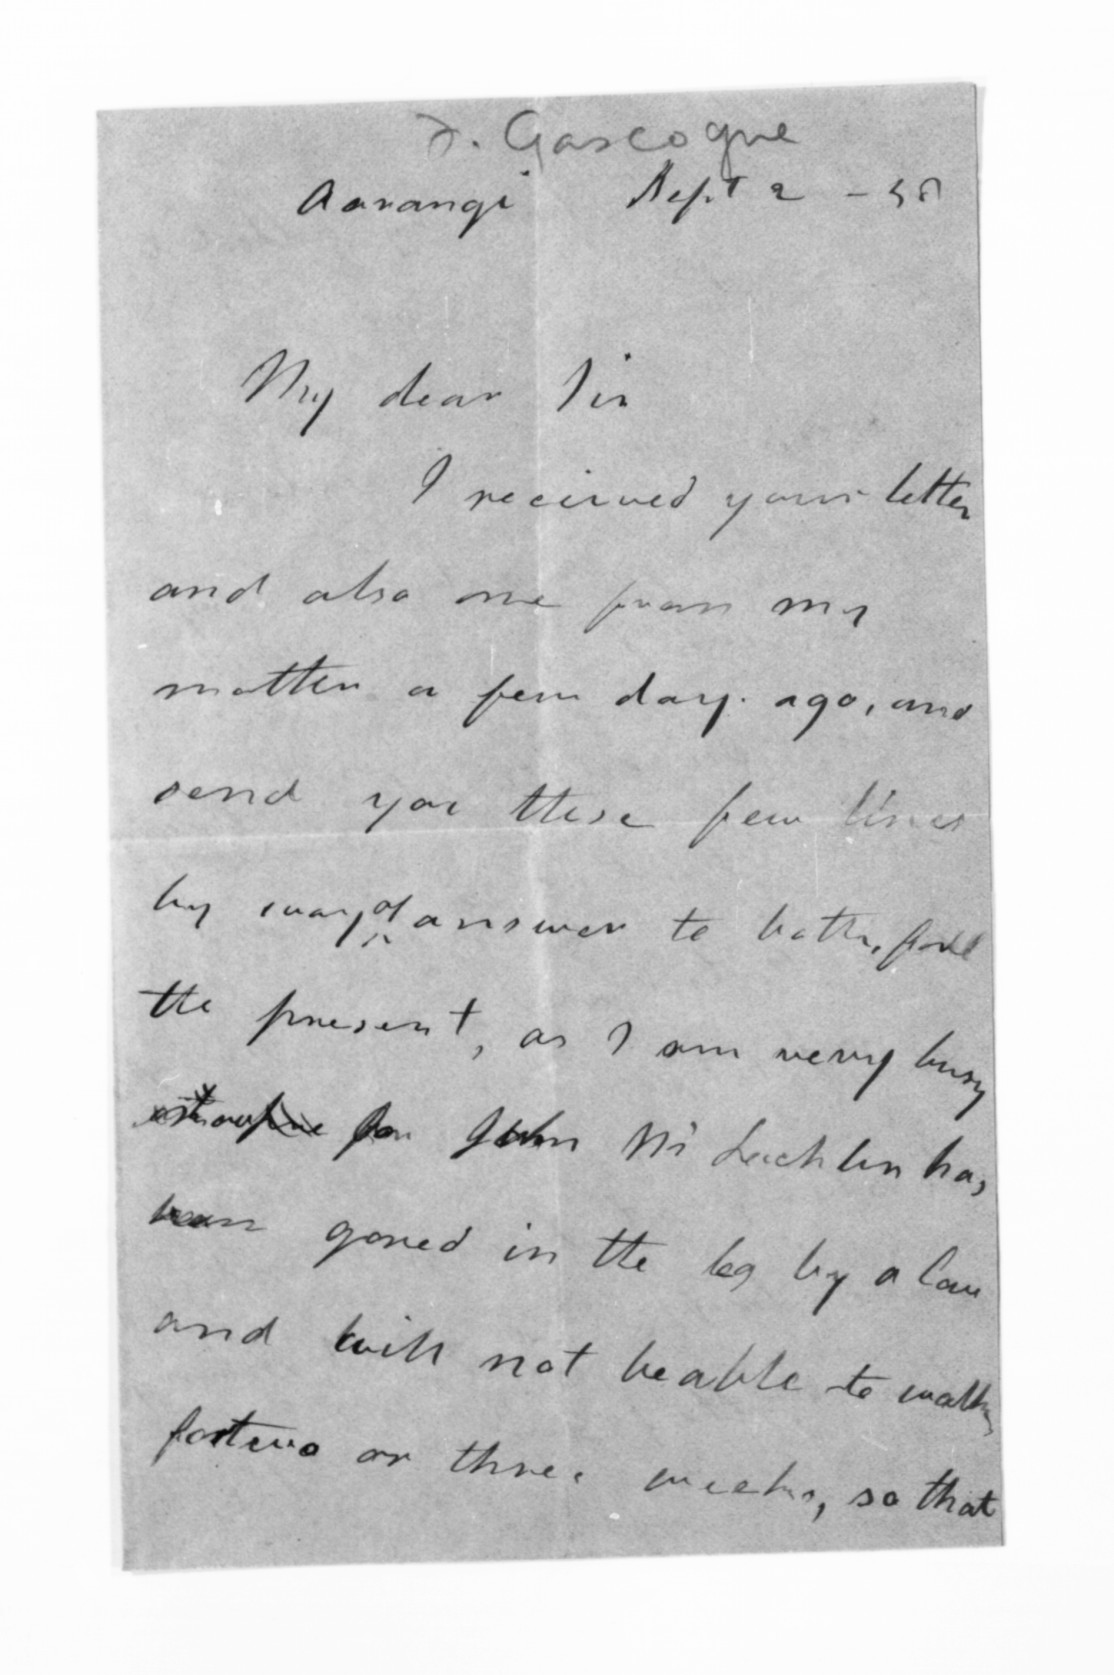 F. Gascogne
Aorangi Sept 2 - 58
My dear Sir
I received your letter
and also one from my
mother a few days ago, and
send you these few lines
by way of answer to both, for
the present, as I am very busy
for John McLachlan has
been gored in the leg by a Cow
and will not be able to walk
for two or three weeks, so that